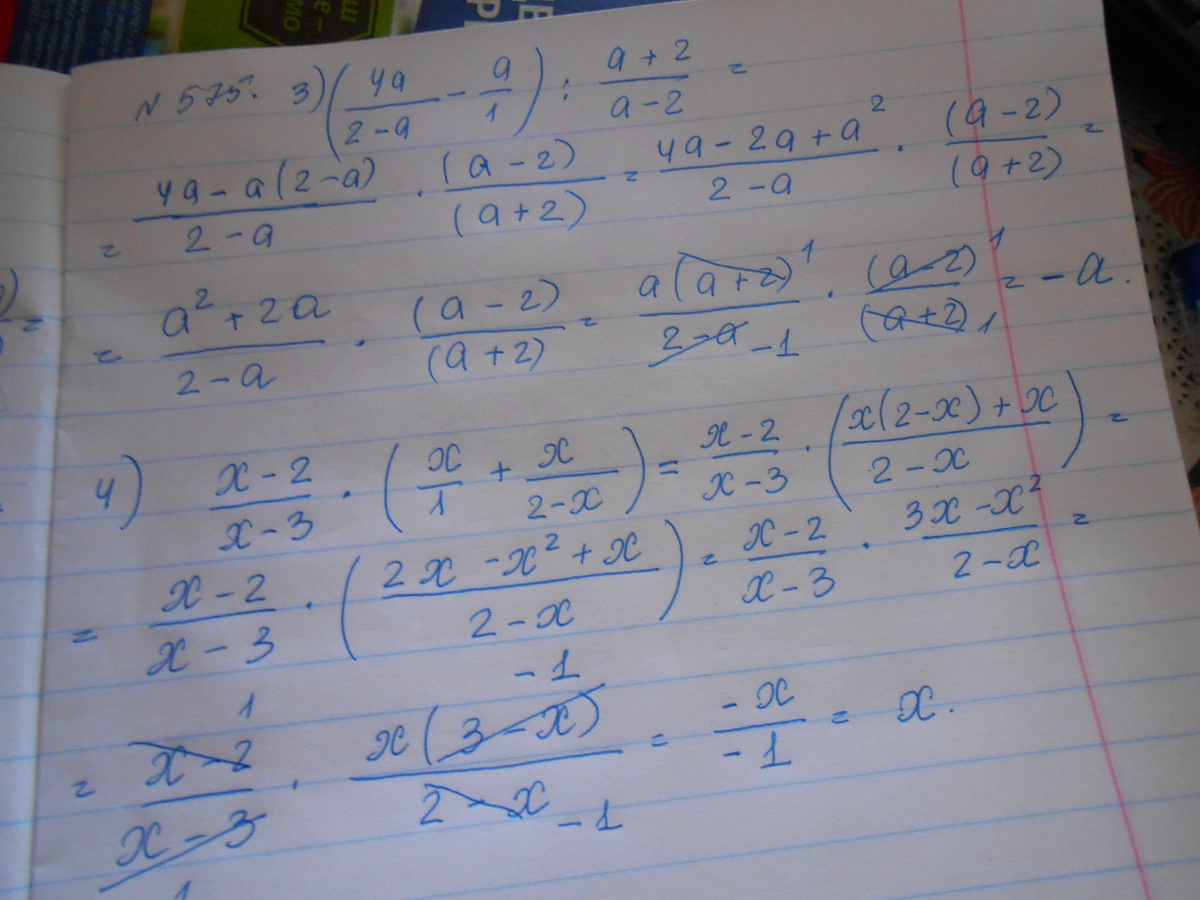 МО
№ 575. 3) (4a/(2-a) - a/1) : (a+2)/(a-2) =
= (4a-a(2-a))/(2-a) · (a-2)/(a+2) = (4a-2a+a²)/(2-a) · (a-2)/(a+2) =
= (a²+2a)/(2-a) · (a-2)/(a+2) = a(a+2) 1/(2-a) -1 · (a-2) 1/(a+2) 1 = -a.
4) (x-2)/(x-3) · (x/1 + x/(2-x)) = (x-2)/(x-3) · ((x(2-x)+x)/(2-x)) =
= (x-2)/(x-3) · ((2x-x²+x)/(2-x)) = (x-2)/(x-3) · (3x-x²)/(2-x) =
= 1 (x-2)/(x-3) 1 · x(3-x) -1/(2-x) -1 = -x/-1 = x.